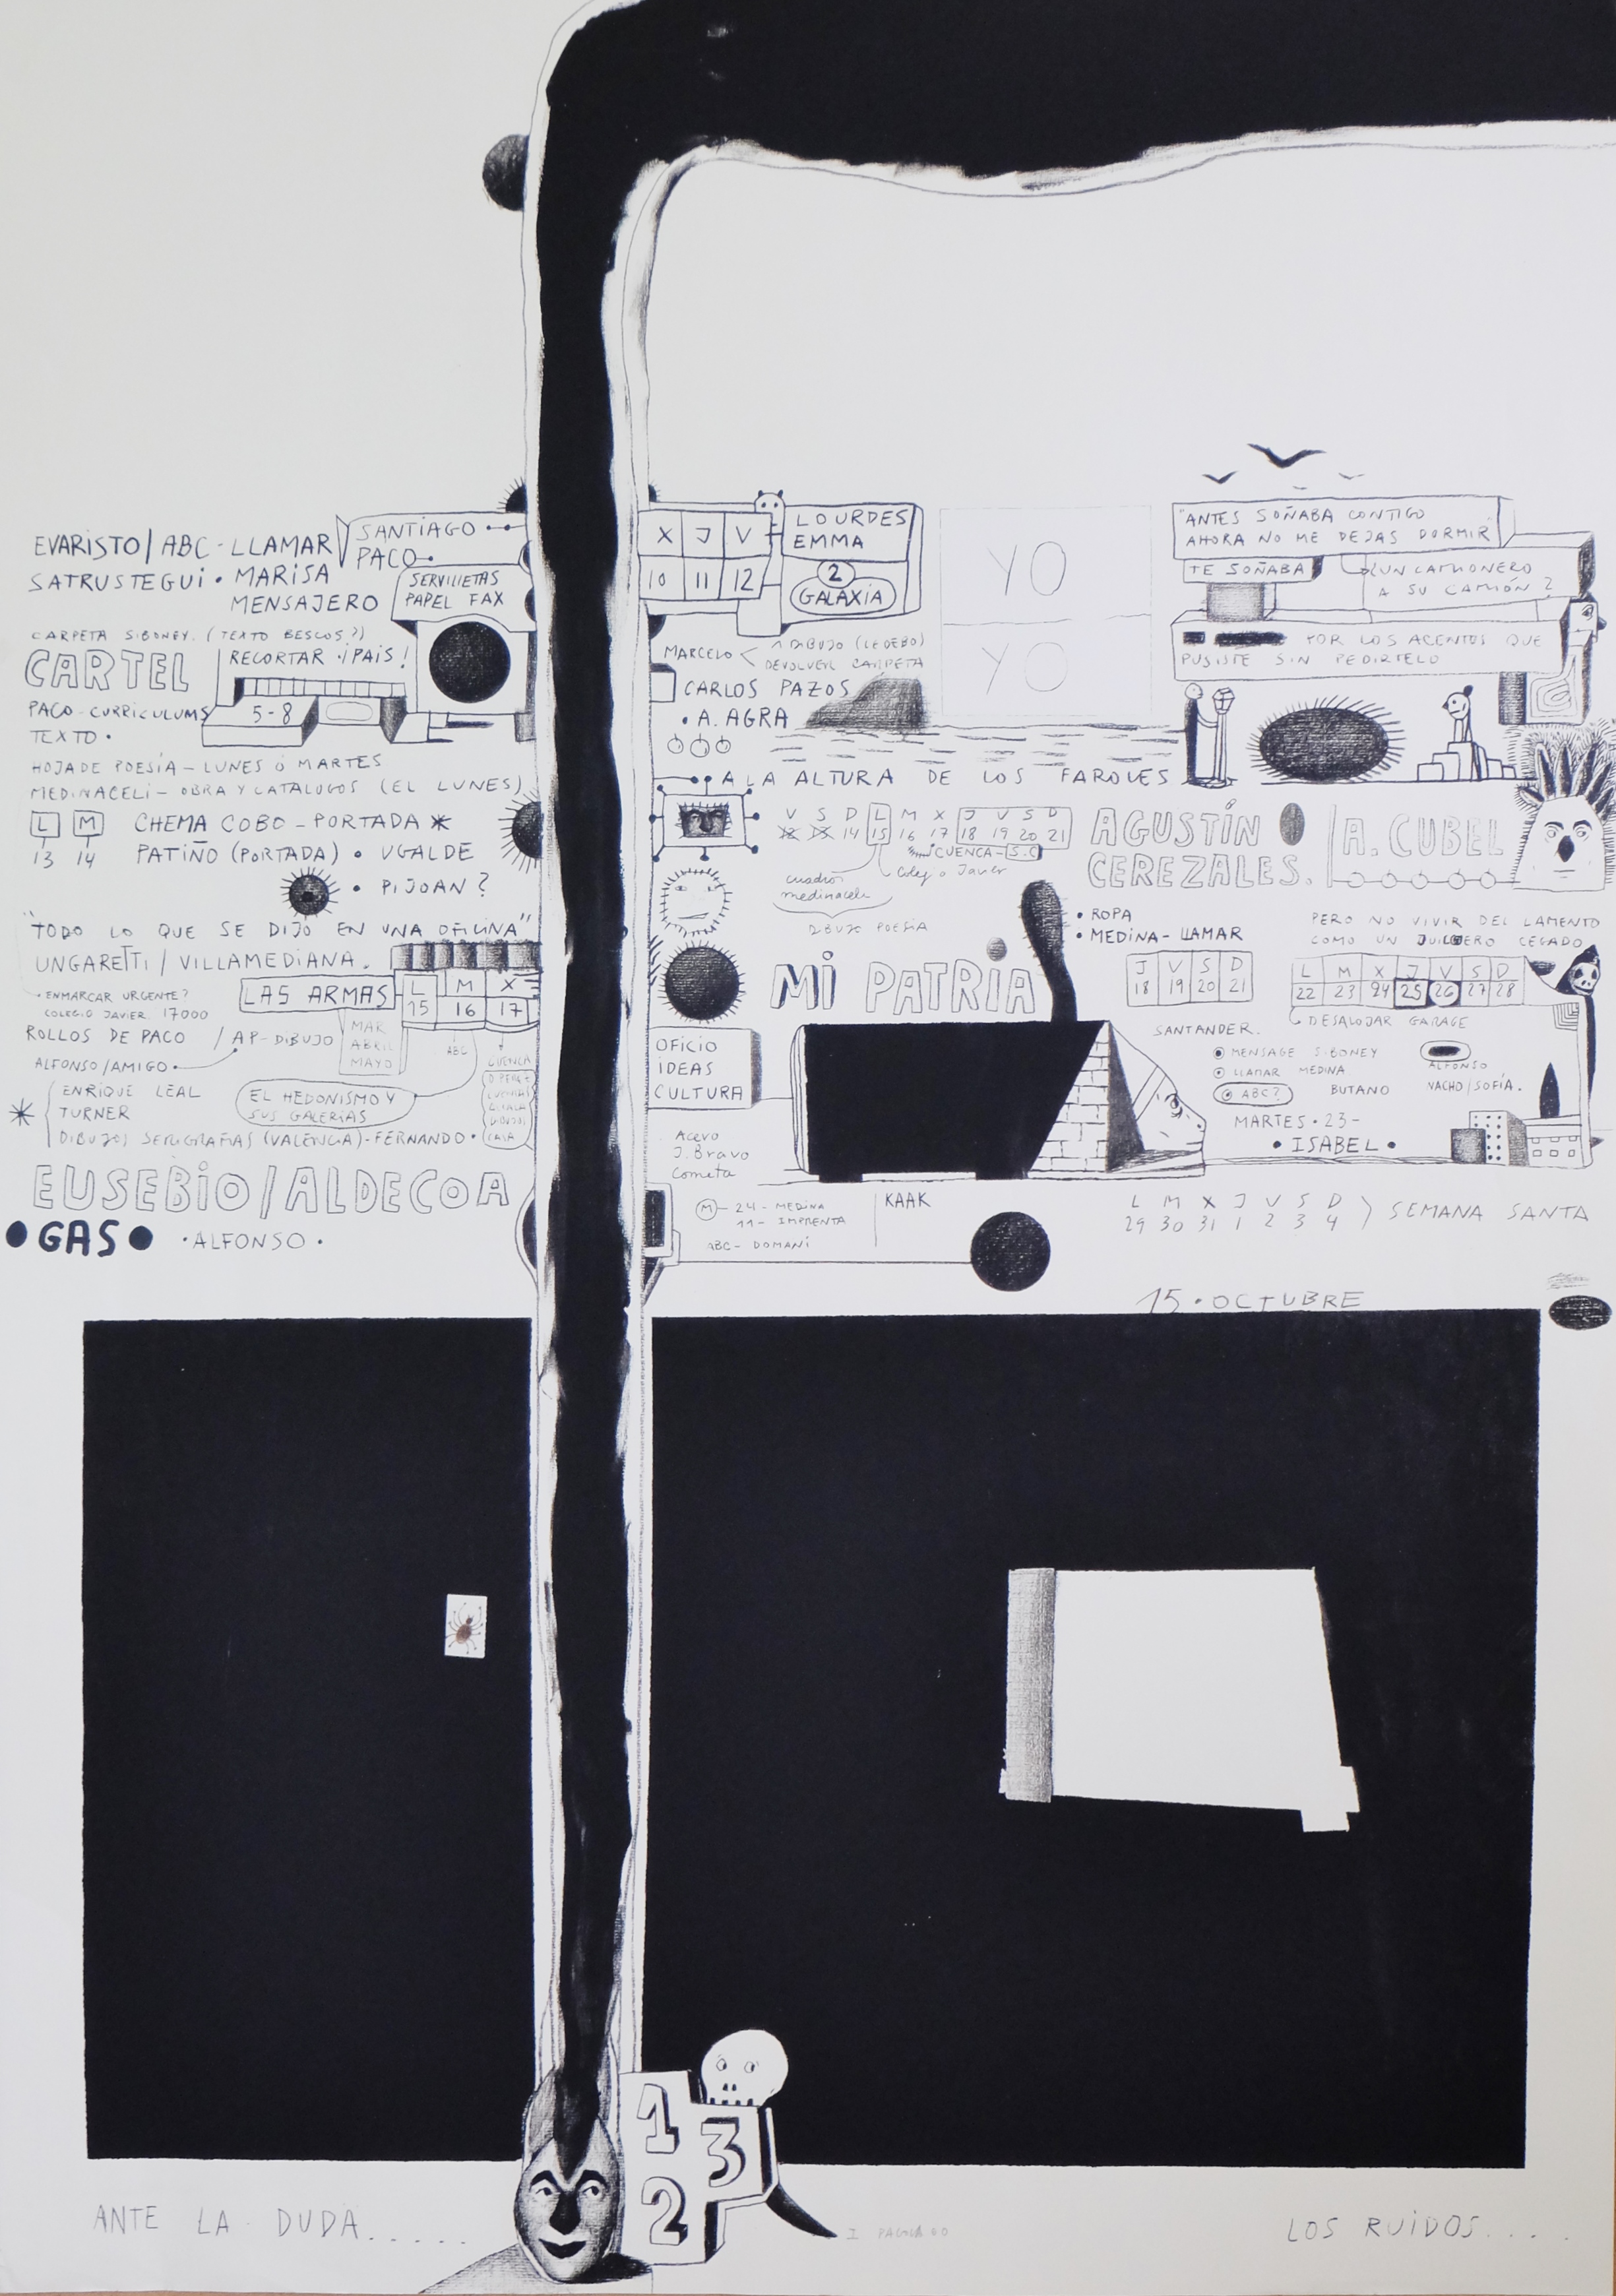 EVARISTO / ABC - LLAMAR
SANTIAGO
PACO
SATRUSTEGUI • MARISA
MENSAJERO
SERVILLETAS
PAPEL FAX
CARPETA SIBONEY. (TEXTO BESCOS?)
CARTEL
RECORTAR ¡PAIS!
PACO - CURRICULUMS
5-8
TEXTO •
HOJA DE POESÍA - LUNES Ó MARTES
MEDINACELI - OBRA Y CATALOGOS (EL LUNES)
L M
13 14
CHEMA COBO - PORTADA *
PATIÑO (PORTADA) • UGALDE
• PIJOAN?
"TODO LO QUE SE DIJO EN UNA OFICINA"
UNGARETTI / VILLAMEDIANA.
ENMARCAR URGENTE?
COLEGIO JAVIER. 17000
LAS ARMAS
L M X
15 16 17
ROLLOS DE PACO / AP - DIBUJO
MAR
ABRIL
MAYO
ABC
CUENCA
ALFONSO / AMIGO •
ENRIQUE LEAL
TURNER
EL HEDONISMO Y
SUS GALERIAS
CASA
DIBUJOS SERIGRAFIAS (VALENCIA) - FERNANDO •
EUSEBIO / ALDECOA
• GAS • • ALFONSO •
X J V
10 11 12
LOURDES
EMMA
2
GALAXIA
MARCELO
1 DIBUJO
DEVOLVER CARPETA
CARLOS PAZOS
• A. AGRA
YO
YO
"ANTES SOÑABA CONTIGO
AHORA NO ME DEJAS DORMIR
TE SOÑABA
¿UN CAMIONERO
A SU CAMIÓN?
POR LOS ACENTOS QUE
PUSISTE SIN PEDIRTELO
A LA ALTURA DE LOS FAROLES
V S D L M X J V S D
14 15 16 17 18 19 20 21
CUENCA - S.C
Coleg o Javier
cuadros
medinaceli
DIBUJO POESIA
AGUSTÍN
CEREZALES.
A. CUBEL
• ROPA
• MEDINA - LLAMAR
MI PATRIA
J V S D
18 19 20 21
PERO NO VIVIR DEL LAMENTO
COMO UN JUILGERO CEGADO
L M X J V S D
22 23 24 25 26 27 28
DESALOJAR GARAGE
SANTANDER.
MENSAGE SIBONEY
LLAMAR MEDINA
ABC?
BUTANO
ALFONSO
NACHO / SOFÍA.
MARTES • 23 -
• ISABEL •
OFICIO
IDEAS
CULTURA
Acevo
J. Bravo
Cometa
M - 24 - MEDINA
11 - IMPRENTA
ABC - DOMANI
KAAK
L M X J V S D
29 30 31 1 2 3 4
SEMANA SANTA
15 • OCTUBRE
1
3
2
ANTE LA DUDA.....
LOS RUIDOS....